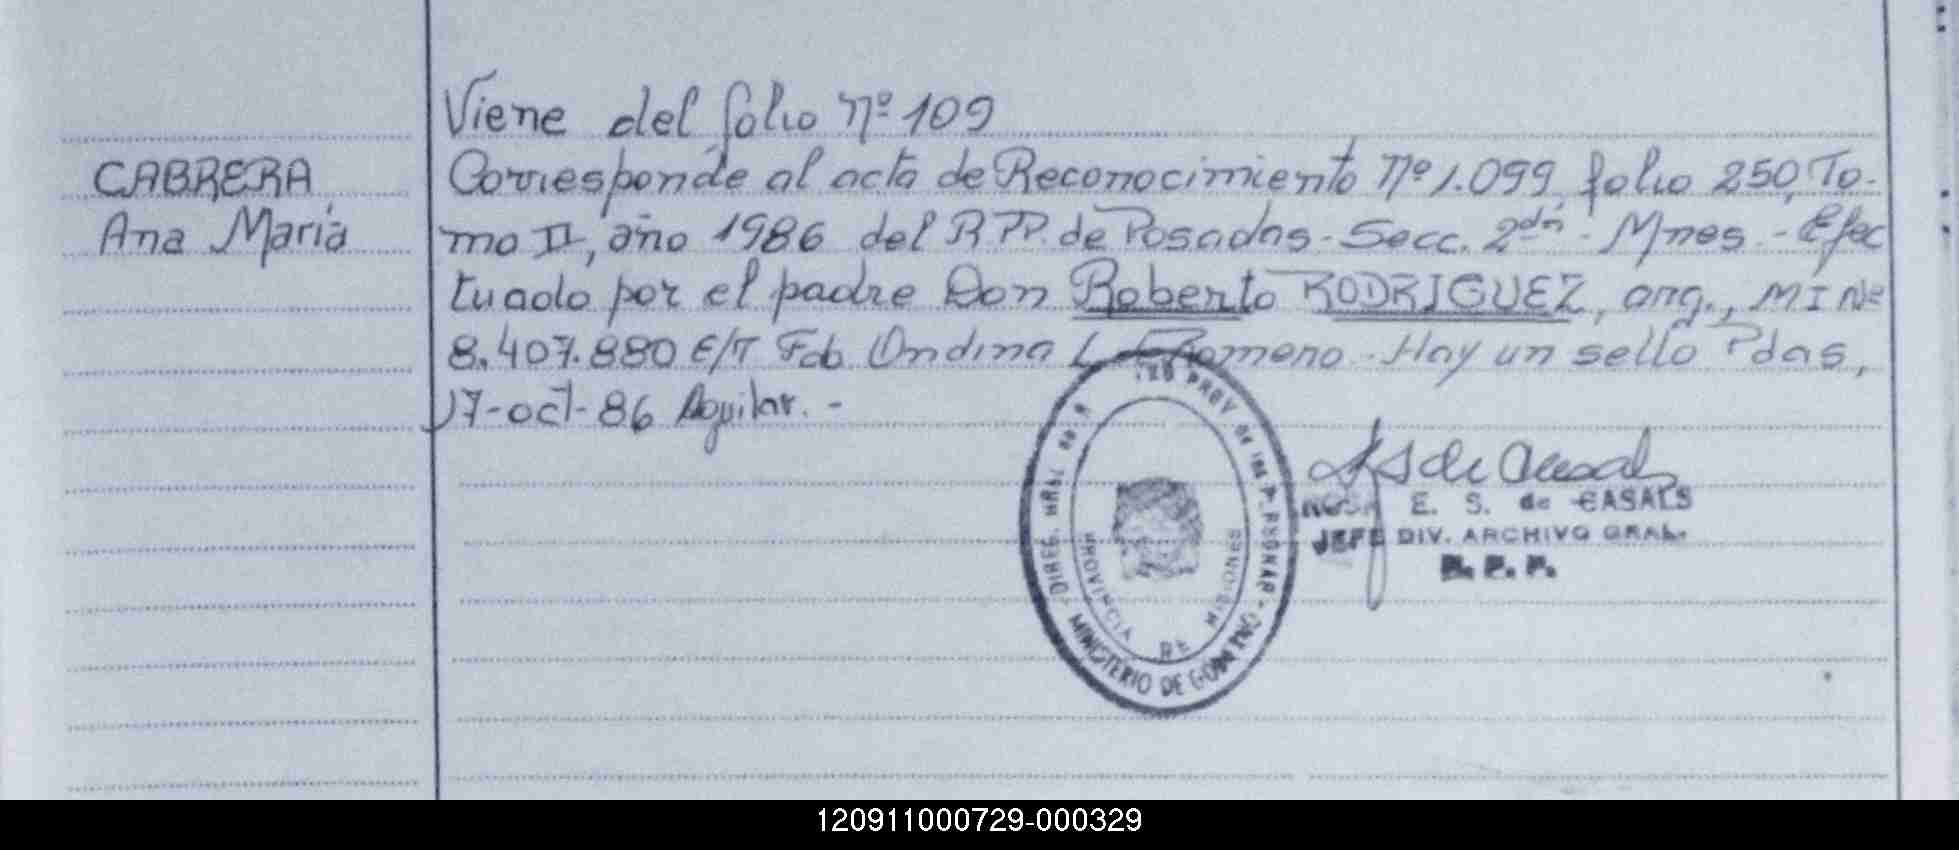 Viene del folio Nº 109
CABRERA
Ana María
Corresponde al acta de Reconocimiento Nº 1.099, folio 250, To-
mo II, año 1986 del R.PP. de Posadas - Secc. 2da - Mnes. - Efec
tuado por el padre Don Roberto RODRIGUEZ, arg., M I Nº
8.407.880 E/T Fdo. Ondina L. Romero. Hay un sello Pdas,
17-oct-86 Aguilar. -
E. S. de CASALS
JEFE DIV. ARCHIVO GRAL.
R. P. P.
PROV. de las PERSONAS
DIREC. GRAL. de R
MINISTERIO DE GOBIERNO
PROVINCIA DE MISIONES
120911000729-000329